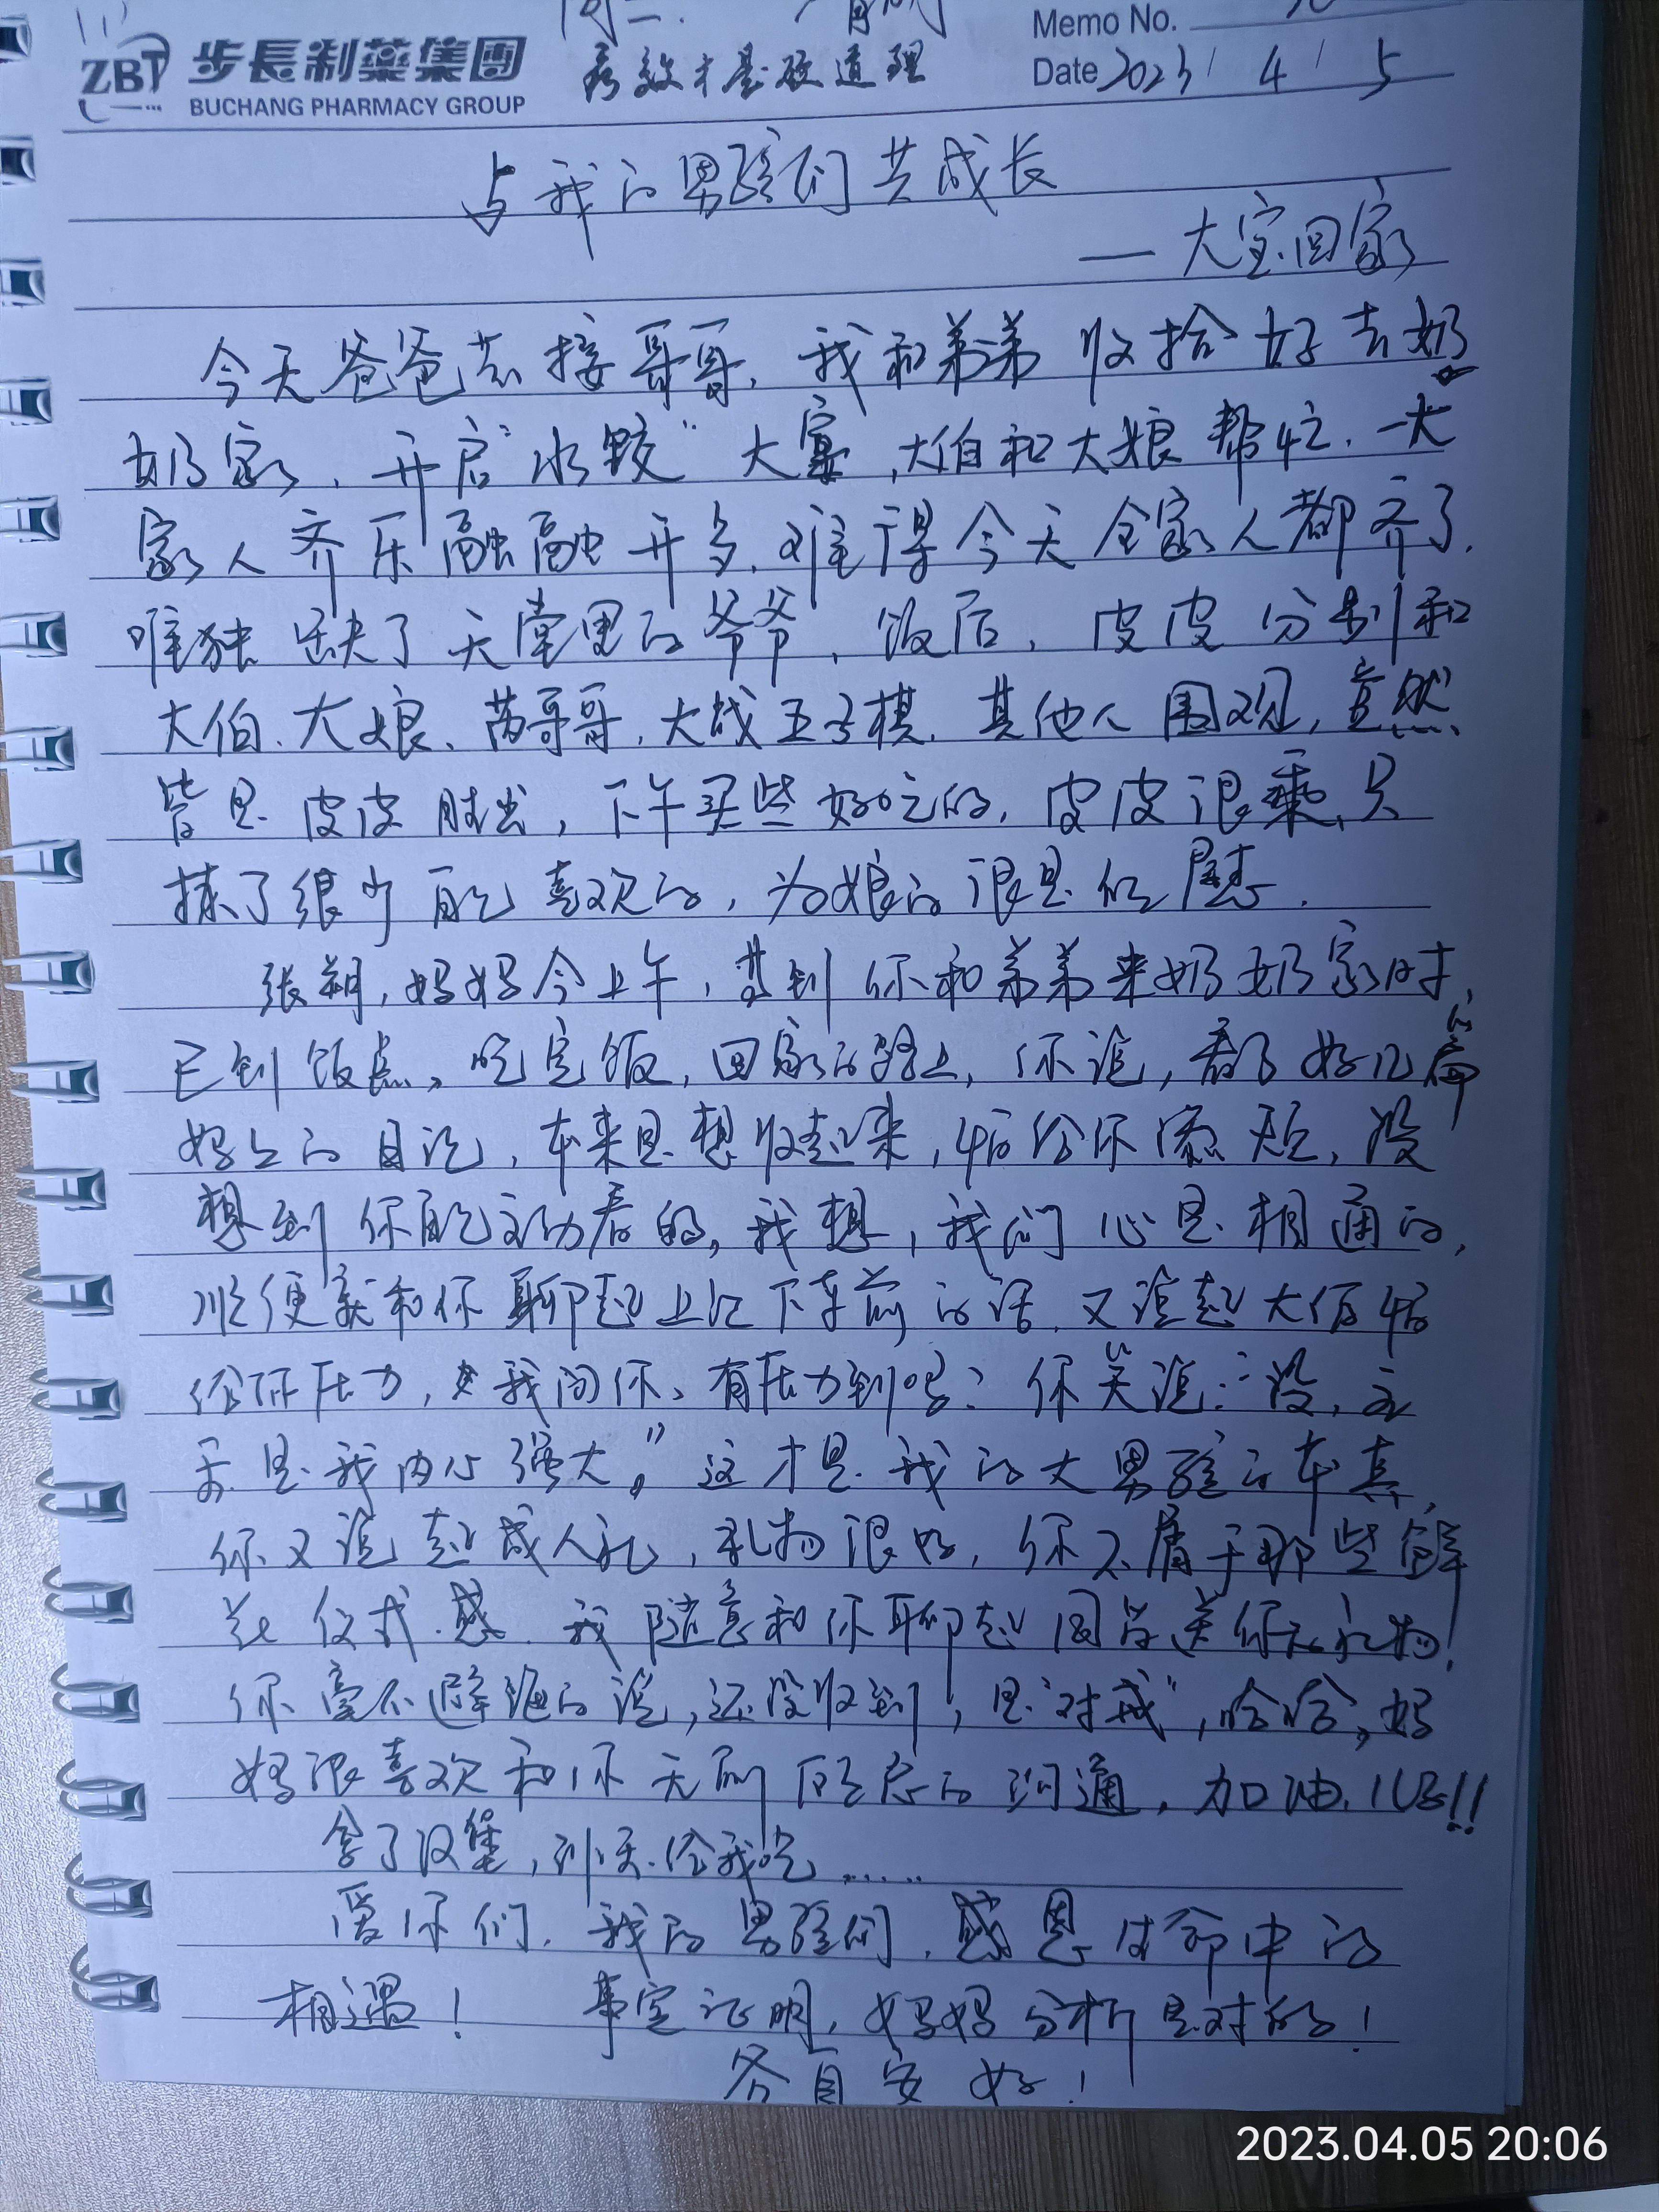 ZBT 步長制藥集團
BUCHANG PHARMACY GROUP
疗效才是硬道理
Memo No.
Date 2023/ 4 / 5
与我的男孩们共成长
— 大宝回家
今天爸爸去接哥哥，我和弟弟收拾好去奶
奶家，开启"水饺"大宴，大伯和大娘帮忙，一大
家人齐乐融融开席，难得今天全家人都齐了，
唯独缺了天堂里的爷爷，饭后，皮皮分别和
大伯、大娘、萌哥哥，大战五子棋，其他人围观，竟然
皆是皮皮胜出，下午买些好吃的，皮皮很乖，只
拣了很少自己喜欢的，为娘的很是欣慰．
张朔，妈妈今上午，等到你和弟弟来奶奶家时，
已到饭点，吃完饭，回家的路上，你说，看了好几篇
妈妈的日记，本来是想收起来，怕给你添烦，没
想到你自己主动看的，我想，我们心是相通的，
顺便就和你聊起上次下车前的话，又说起大伯怕
给你压力，我问你、有压力到吗？你笑说："没，主
要是我内心强大。"这才是我的大男孩的本真，
你又说起成人礼，礼物很好，你不属于那些鲜
花仪式感．我随意和你聊起同学送你礼物，
你毫不避讳的说，还没收到，是"对戒"，哈哈，妈
妈很喜欢和你无所顾忌的沟通，加油，儿子!!
拿了汉堡，到家给我吃......
爱你们，我的男孩们，感恩生命中的
相遇！ 事实证明，妈妈分析是对的！
各自安好！
2023.04.05 20:06